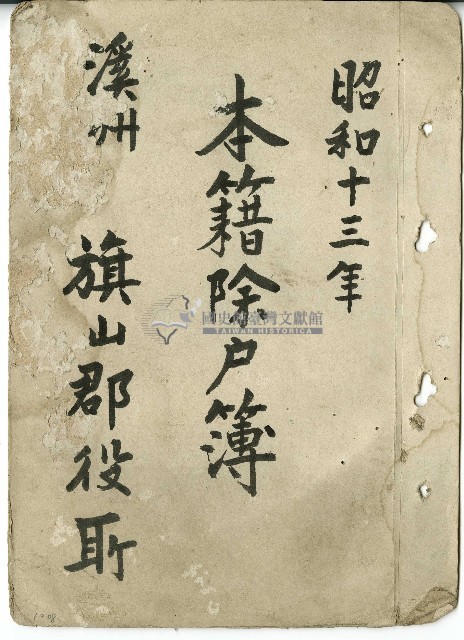 昭和十三年
本籍除户簿
溪州 旗山郡役所
國史館臺灣文獻館
TAIWAN HISTORICA